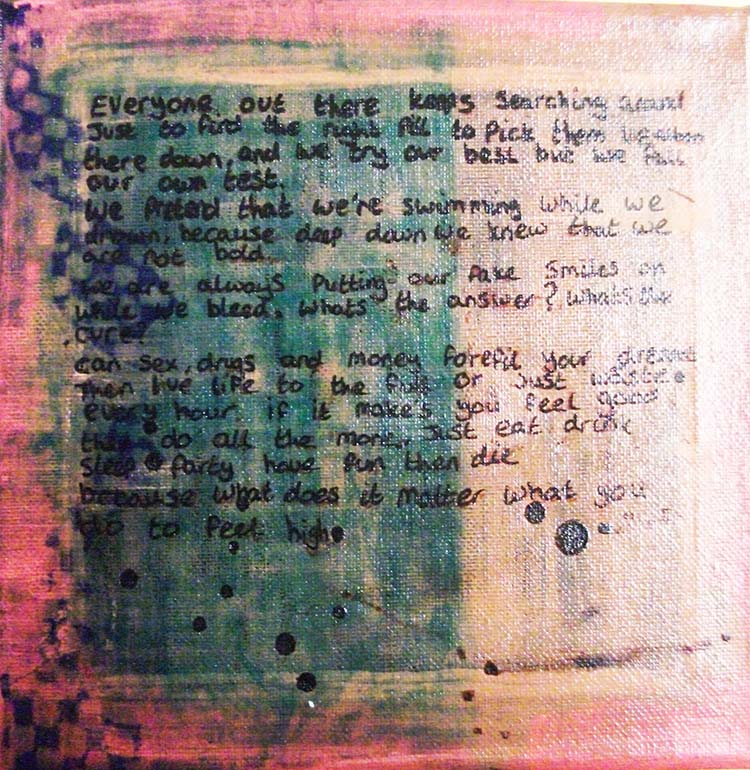 Everyone out there keeps searching around
Just to find the right Pill to Pick them up when
there down, and we try our best but we fail
our own test.
We Pretend that we're swimming while we
drown, because deep down we knew that we
are not bold.
we are always Putting our fake smiles on
while we bleed. whats the answer? whats the
cure?
can sex, drugs and money forefil your dreams
Then live life to the full or Just waste
every hour. if it make's you feel good
then do all the more, Just eat drink
Sleep Party have fun then die
because what does it matter what you
do to feel high.